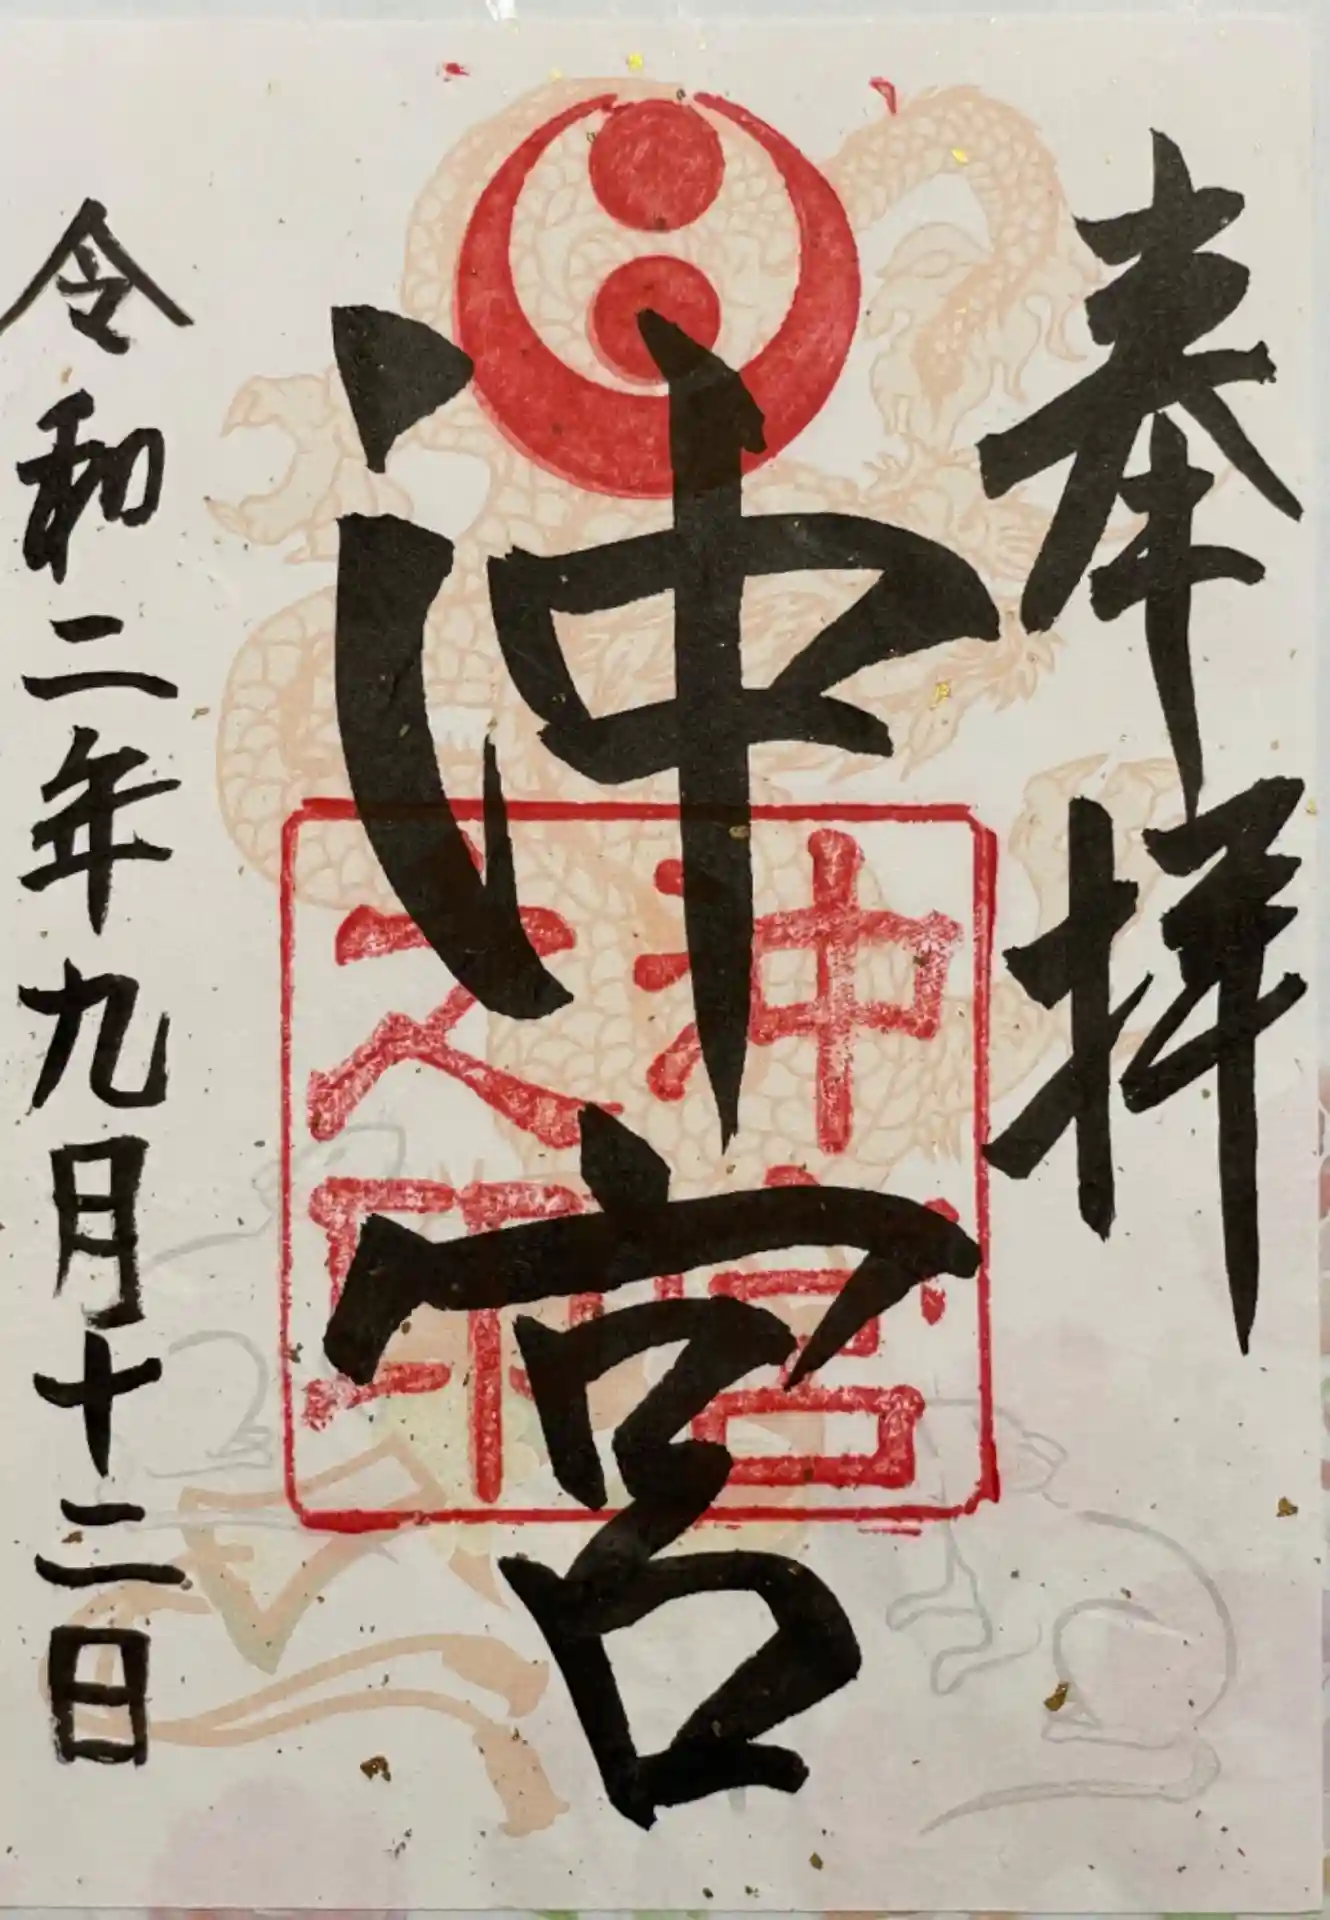 奉拝
沖宮
沖宮
之印
令和二年九月十二日